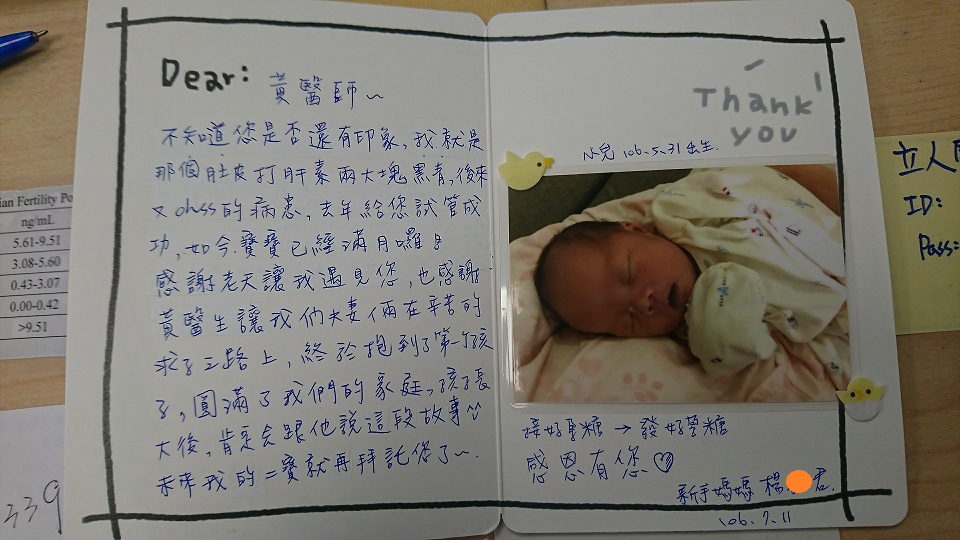 Dear: 黃醫師~
不知道您是否還有印象,我就是
那個肚皮打肝素兩大塊黑青,後來
又ohss的病患,去年給您試管成
功,如今寶寶已經滿月囉!
感謝老天讓我遇見您,也感謝
黃醫生讓我們夫妻倆在辛苦的
求子之路上,終於抱到了第一個孩
子,圓滿了我們的家庭,孩子長
大後,肯定會跟他說這段故事
未來我的二寶就再拜託您了~.
Thank
you
小兒 106.5.31出生.
接好孕糖→發好孕糖
感恩有您♡
新手媽媽 楊 君.
106.7.11
ian Fertility Po
ng/mL
5.61-9.51
3.08-5.60
0.43-3.07
0.00-0.42
>9.51
339
立人
ID:
Pass: